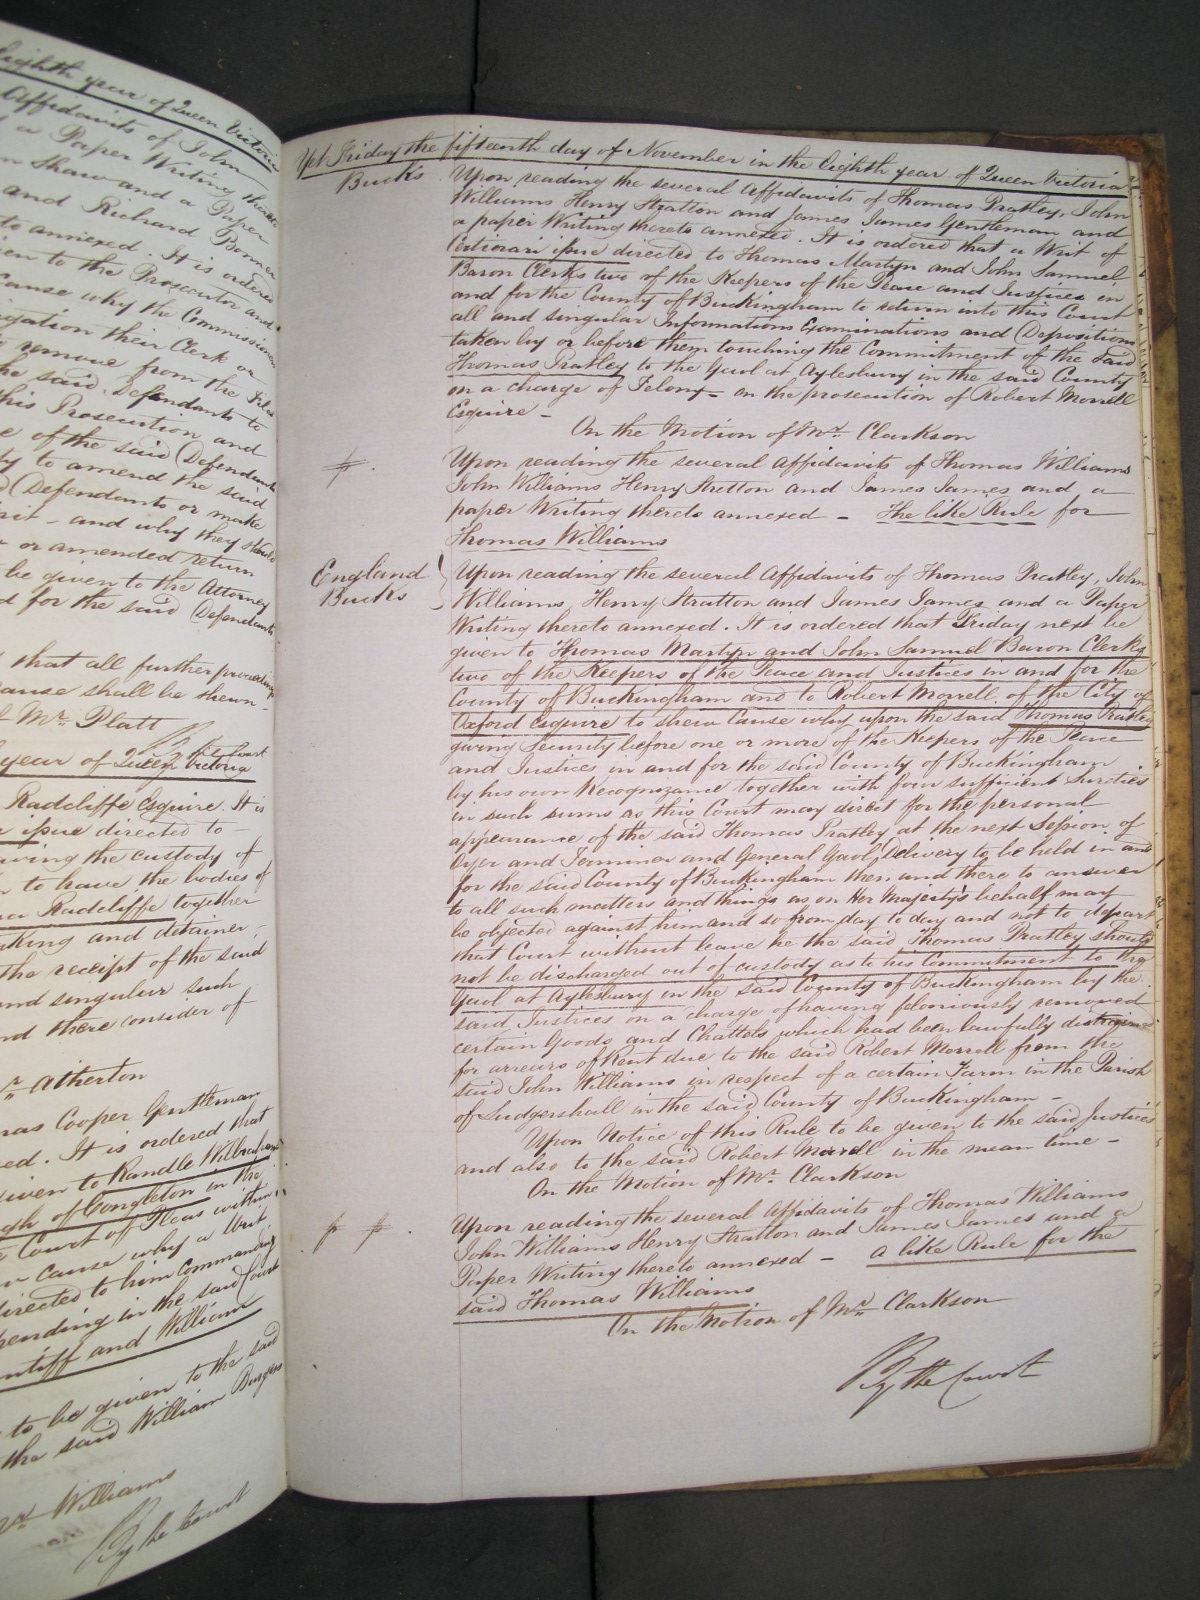 Eighth year of Queen Victoria
Affidavits of John
a Paper Writing thereto
Shaw and a Paper
and Richard Bonner
to annexed. It is ordered
to the Prosecutor and
Cause why the Commissioners
their Clerk or
remove from the Files
the said Defendants to
this Prosecution and
of the said Defendants
to amend the said
Defendants or make
and why they should
or amended return
be given to the Attorney
for the said Defendants
that all further proceedings
cause shall be shewn
Mr. Platt
By the Court
year of Queen Victoria
Radcliffe Esquire. It is
issue directed to
having the custody of
to have the bodies of
Radcliffe together
taking and detainer
the receipt of the said
and singular such
and there consider of
Mr. Atherton
Thomas Cooper Gentleman
It is ordered that
given to Randle Wilbraham
of Congleton in the
Court of Pleas within
cause why a Writ
directed to him Commanding
pending in the said Court
Plaintiff and William
to be given to the said
the said William Burgess
Williams
By the Court
Yet Friday the fifteenth day of November in the Eighth year of Queen Victoria
Bucks Upon reading the several Affidavits of Thomas Pratley, John
Williams Henry Stratton and James James Gentleman and
a paper Writing thereto annexed. It is ordered that a Writ of
Certiorari issue directed to Thomas Martyn and John Samuel
Baron Clerks two of the Keepers of the Peace and Justices in
and for the County of Buckingham to return into this Court
all and singular Informations Examinations and Depositions
taken by or before them touching the Commitment of the said
Thomas Pratley to the Gaol at Aylesbury in the said County
on a charge of Felony - on the prosecution of Robert Morrell
Esquire -
On the Motion of Mr. Clarkson
Upon reading the several Affidavits of Thomas Williams
John Williams Henry Stretton and James James and a
paper Writing thereto annexed - The like Rule for
Thomas Williams
England Upon reading the several Affidavits of Thomas Pratley, John
Bucks Williams, Henry Stratton and James James and a Paper
Writing thereto annexed. It is ordered that Friday next be
given to Thomas Martyn and John Samuel Baron Clerks
two of the Keepers of the Peace and Justices in and for the
County of Buckingham and to Robert Morrell of the City of
Oxford Esquire to shew Cause why upon the said Thomas Pratley
giving Security before one or more of the Keepers of the Peace
and Justices in and for the said County of Buckingham
by his own Recognizance together with four sufficient Sureties
in such sums as this Court may direct for the personal
appearance of the said Thomas Pratley at the next Session of
Oyer and Terminer and General Gaol Delivery to be held in and
for the said County of Buckingham then and there to answer
to all such matters and things as on Her Majesty's behalf may
be objected against him and so from day to day and not to depart
that Court without leave he the said Thomas Pratley should
not be discharged out of custody as to his Commitment to the
Gaol at Aylesbury in the said County of Buckingham by the
said Justices on a charge of having feloniously removed
certain Goods and Chattels which had been lawfully distrained
for arrears of Rent due to the said Robert Morrell from the
said John Williams in respect of a certain Farm in the Parish
of Ludgershall in the said County of Buckingham -
Upon Notice of this Rule to be given to the said Justices
and also to the said Robert Morrell in the mean time -
On the Motion of Mr. Clarkson
Upon reading the several Affidavits of Thomas Williams
John Williams Henry Stratton and James James and a
Paper Writing thereto annexed - a like Rule for the
said Thomas Williams
On the Motion of Mr. Clarkson
By the Court